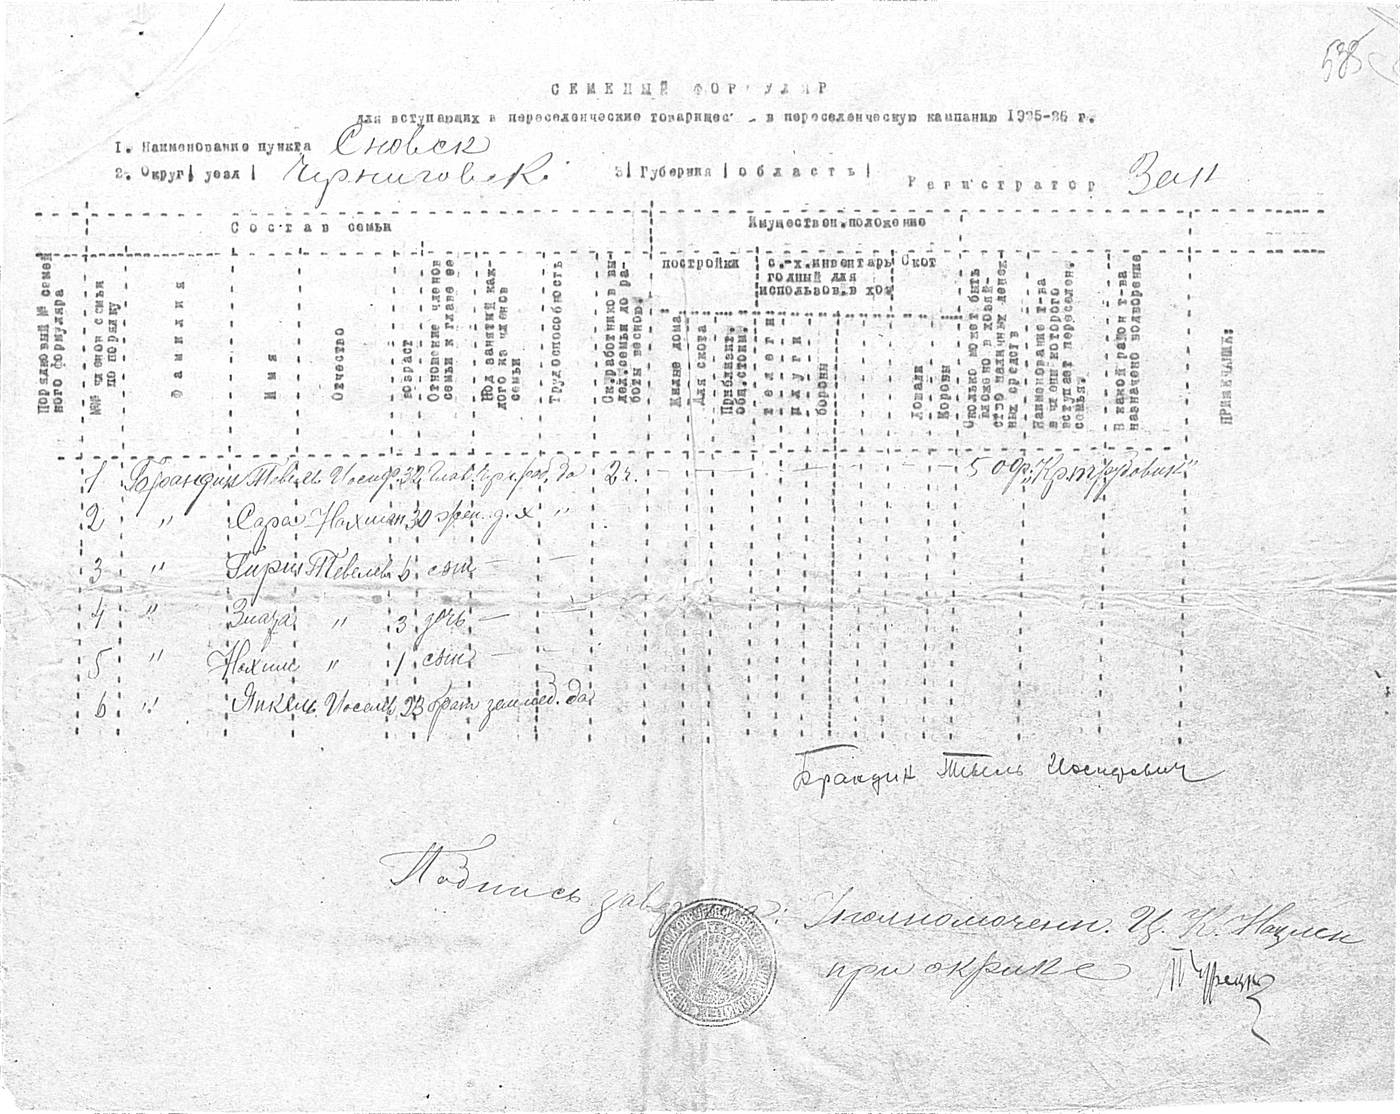 СЕМЕЙНЫЙ ФОРМУЛЯР
для вступающих в переселенческие товарищес в переселенческую кампанию 1925-26 г.
1. Наименование пункта Сновск
2. Округ/ уезд/ Черниговск. 3/ Губерния /область/ Регистратор
Состав семьи Имуществен.положение
постройки с.-х.инвентарь годный для использов.в хоз Скот
Порядковый № семейного формуляра
№№ членов семьи по порядку
Фамилия
Имя
Отчество
возраст
Отношение членов семьи к главе ее
Под занятий каждого из членов семьи
Трудоспособность
Ск.работников выдел.семьи до работы весною.
Жилые дома
Для скота
Приблизит. общ.стоим.
телеги
плуги
бороны
Лошади
Коровы
Сколько может быть вложено в хозяйство наличных денежных средств
Наименование т-ва в члены которого вступает переселен. семья.
В какой район т-ва назначено водворение
ПРИМЕЧАНИЕ:
1 Брандин Тевель Иосиф. 32 глав. да 2 ч. — — — — — 50 р.
2 " Сара Нахман 30 жен. д.х "
3 " Гирш Тевелев. 6 сын — —
4 " Злата " 3 дочь —
5 " " 1 сын — —
6 " Янкель Иоселев 23 брат землед. да
Брандин Тевель Иосифович
Подпись Уполномоченн. Ц. К. Нацмен
при окрике